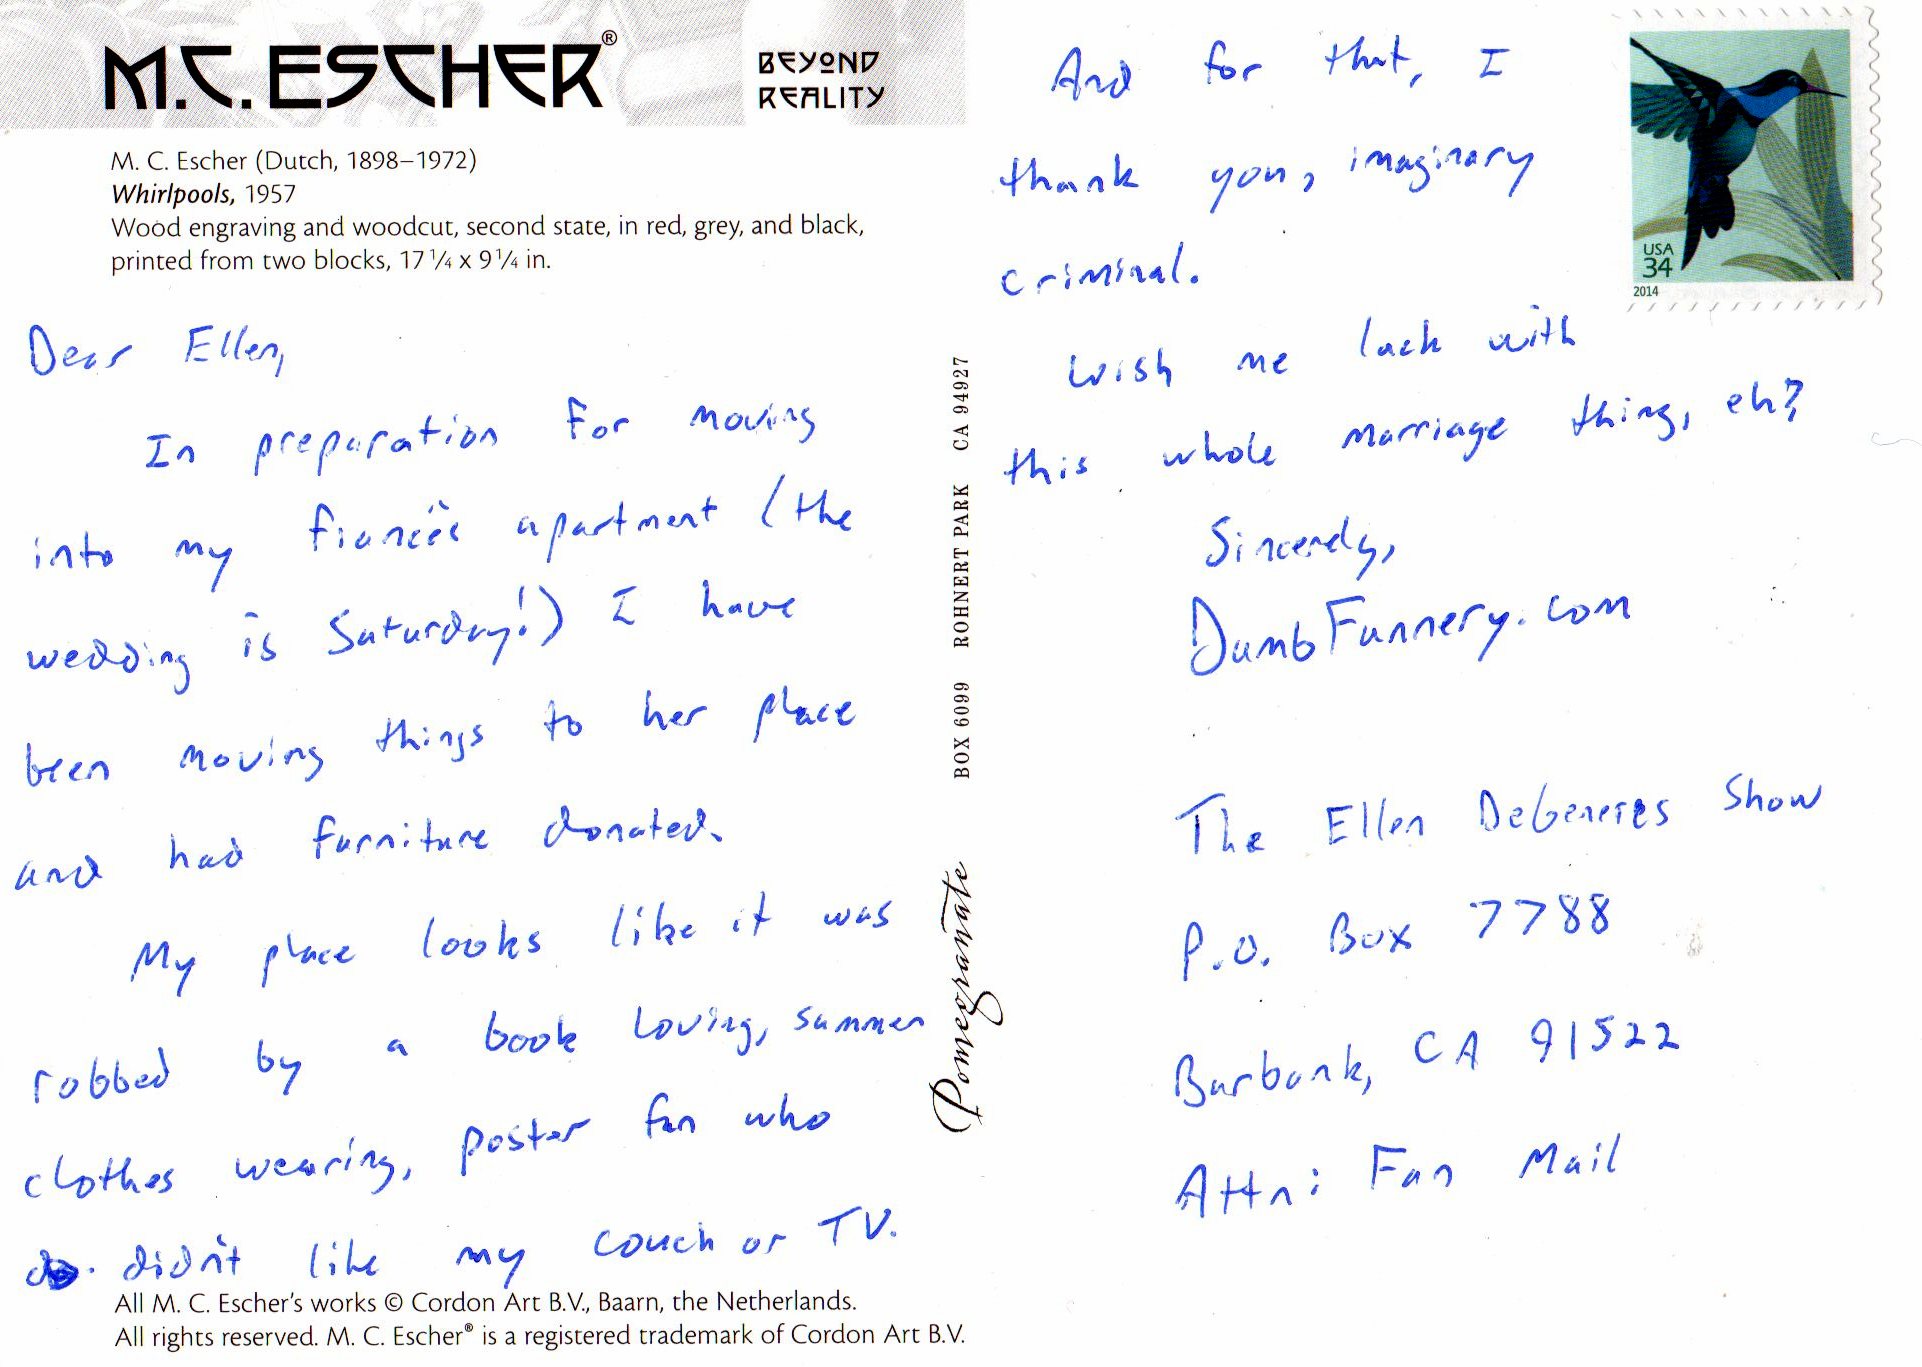 M.C. ESCHER®
BEYOND
REALITY
M. C. Escher (Dutch, 1898–1972)
Whirlpools, 1957
Wood engraving and woodcut, second state, in red, grey, and black,
printed from two blocks, 17 ¼ x 9 ¼ in.
Dear Ellen,
In preparation for moving
into my fiancée's apartment (the
wedding is Saturday!) I have
been moving things to her place
and had furniture donated.
My place looks like it was
robbed by a book loving, summer
clothes wearing, poster fan who
didn't like my couch or TV.
All M. C. Escher's works © Cordon Art B.V., Baarn, the Netherlands.
All rights reserved. M. C. Escher® is a registered trademark of Cordon Art B.V.
Pomegranate BOX 6099 ROHNERT PARK CA 94927
And for that, I
thank you, imaginary
criminal.
Wish me luck with
this whole marriage thing, eh?
Sincerely,
DumbFunnery.com
USA
34
2014
The Ellen DeGeneres Show
P.O. Box 7788
Burbank, CA 91522
Attn: Fan Mail